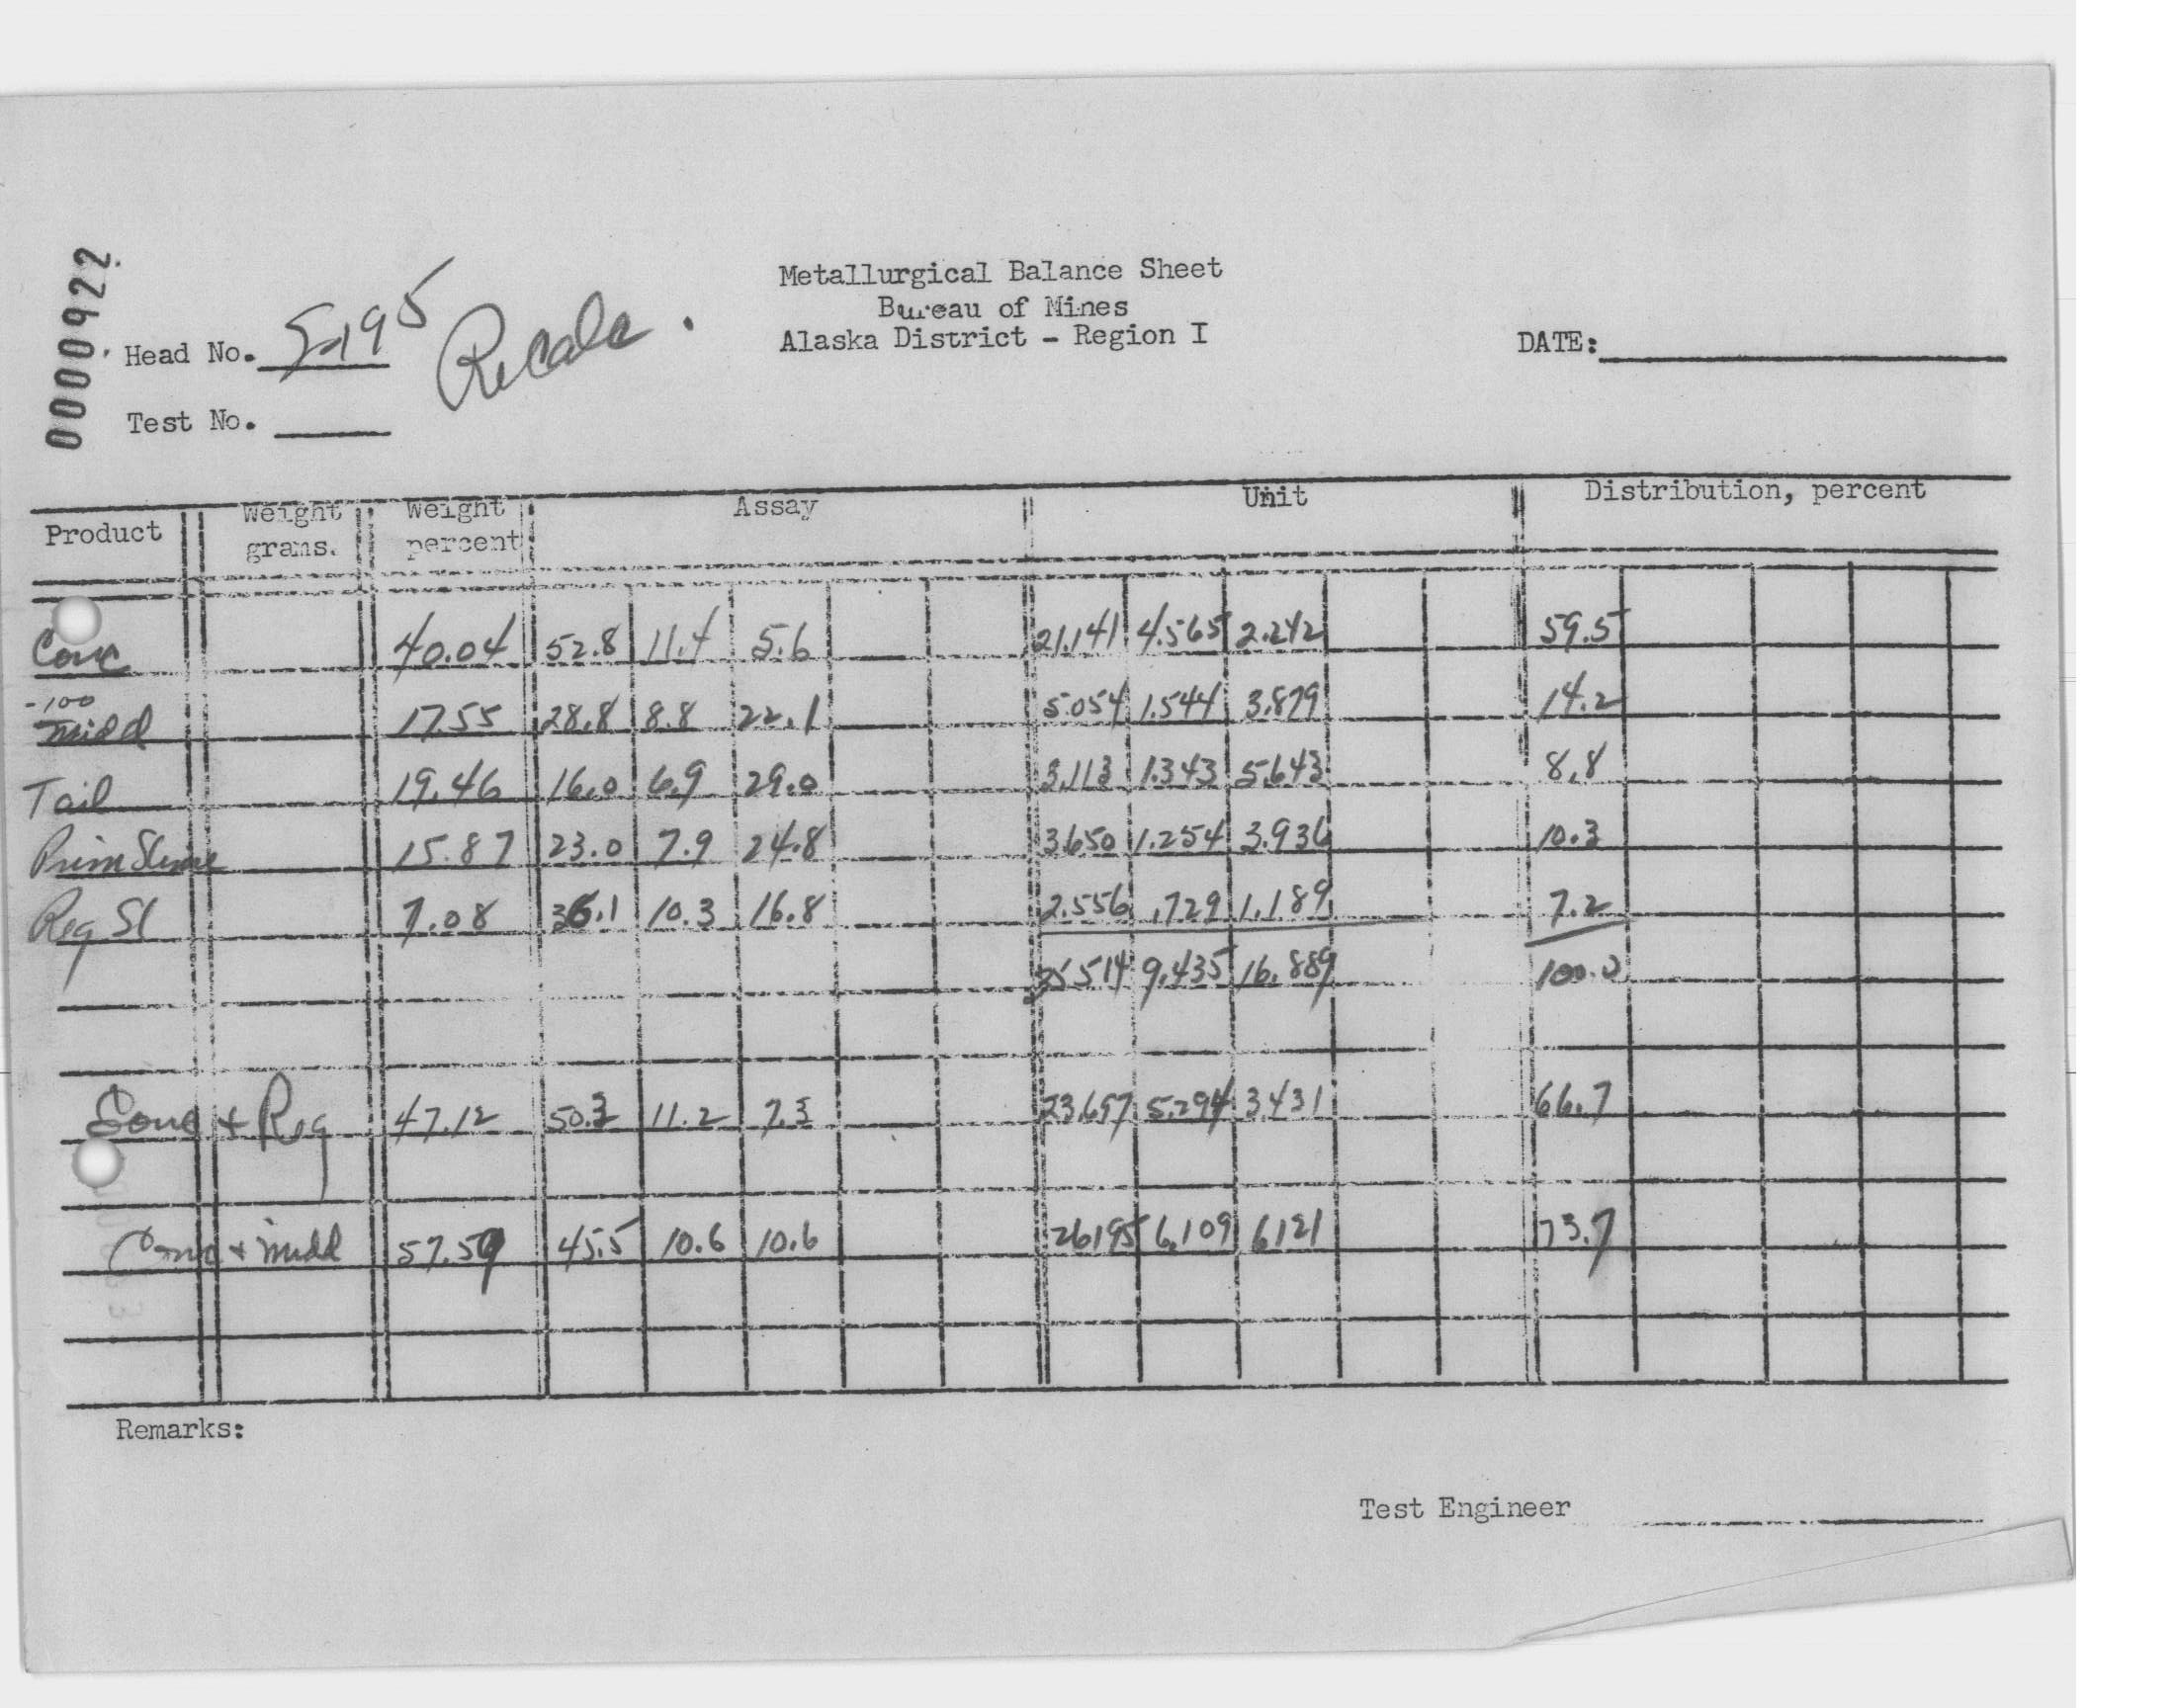 0000922
Metallurgical Balance Sheet
Bureau of Mines
Alaska District - Region I
Head No. Recalc.
DATE:
Test No.
Product Weight grams. Weight percent Assay Unit Distribution, percent
Conc 40.04 52.8 11.4 5.6 21.141 4.565 2.242 59.5
-100
Midd 17.55 28.8 8.8 22.1 5.054 1.544 3.879 14.2
Tail 19.46 16.0 6.9 29.0 3.113 1.343 5.643 8.8
Prim Slime 15.87 23.0 7.9 24.8 3.650 1.254 3.936 10.3
Reg Sl 7.08 36.1 10.3 16.8 2.556 .729 1.189 7.2
35514 9.435 16.889 100.0
Conc + Reg 47.12 50.3 11.2 7.3 23.697 5.294 3.431 66.7
Conc + Midd 57.59 45.5 10.6 10.6 26195 6.109 6121 73.7
Remarks:
Test Engineer